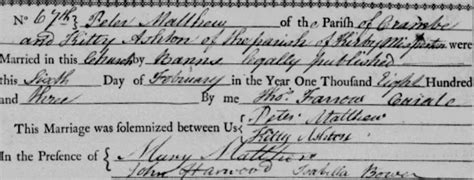 No 67th } Peter Matthew of the Parish of Crambe
and Kitty Ashton of the parish of Kirby Misperton were
Married in this Church by Banns legally published
this Sixth Day of February in the Year One Thousand Eight Hundred
and three By me Thos. Farrow Curate
This Marriage was solemnized between Us { Peter Matthew
Kitty Ashton
In the Presence of { Mary Matthew
John Harwood Isabella Bower